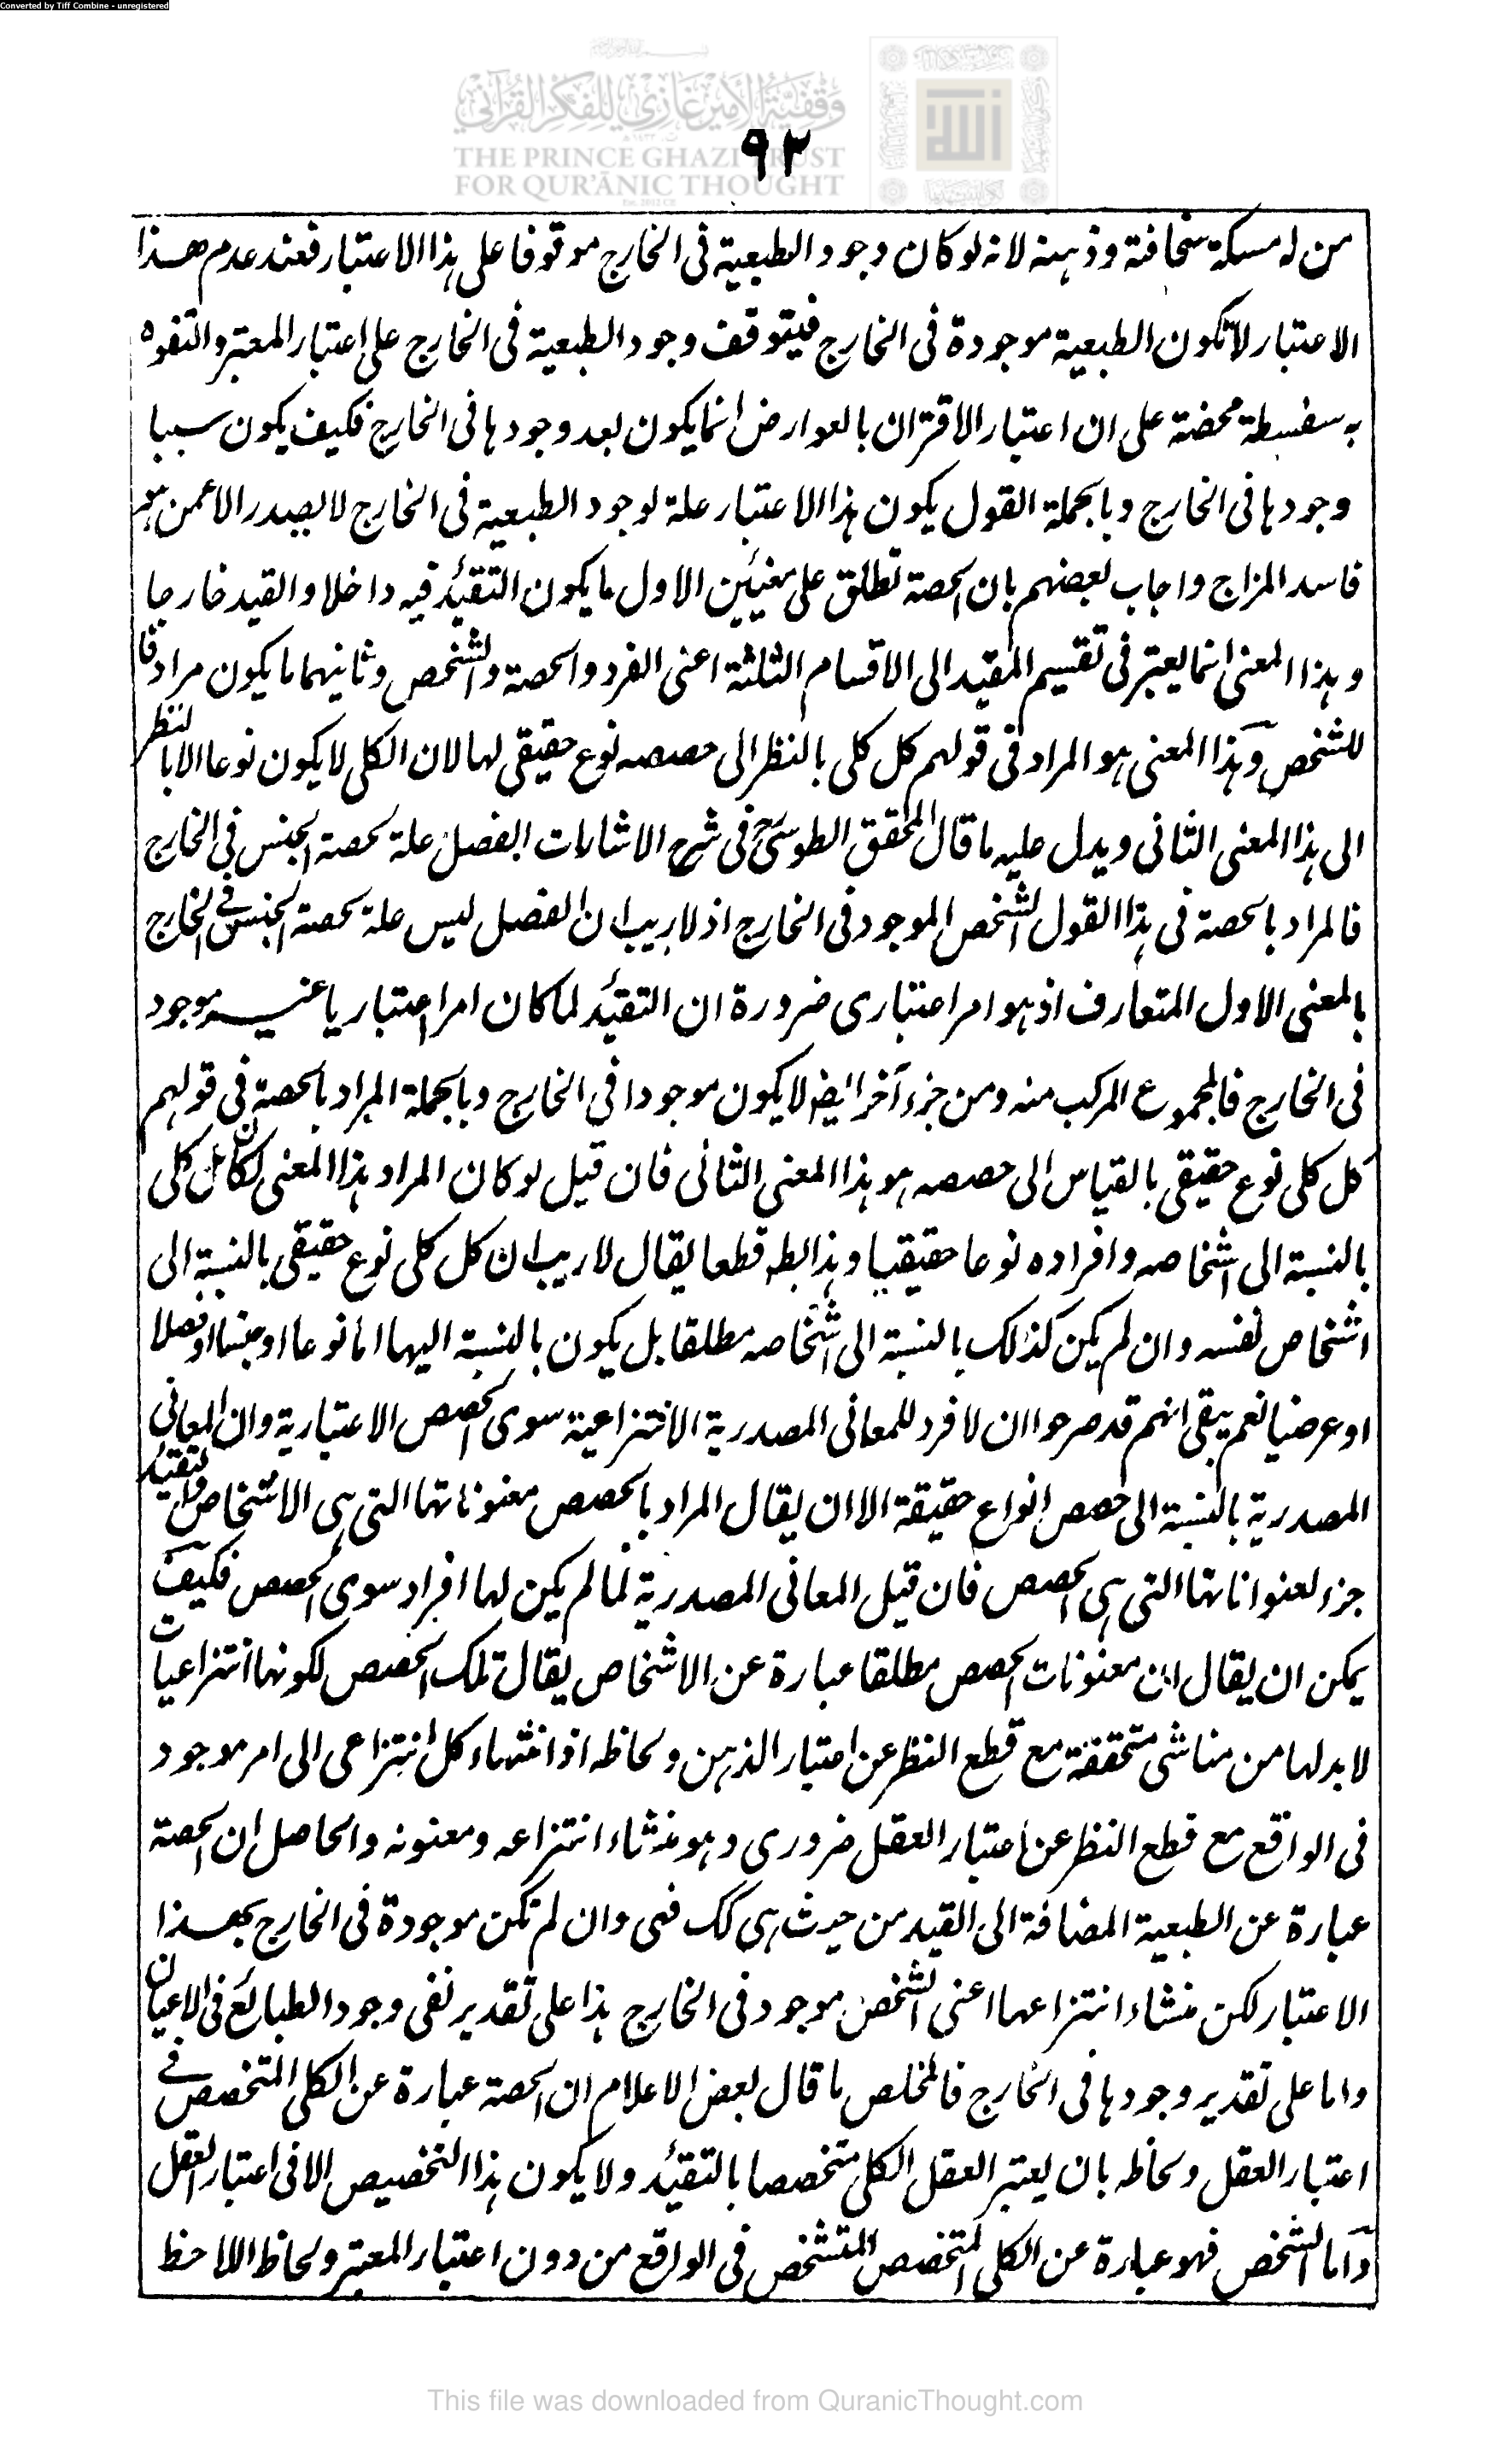 Converted by Tiff Combine - unregistered
وقفية الأمير غازي للفكر القرآني
THE PRINCE GHAZI TRUST
FOR QUR'ĀNIC THOUGHT
٩٣
من له مسكة سخافته وذهينه لانه لو كان وجود الطبعية فى الخارج موقوفا على هذا الاعتبار فعند عدم هذا
الاعتبار لا تكون الطبعية موجودة فى الخارج فيتوقف وجود الطبعية فى الخارج على اعتبار المعتبر والتفوه
به سفسطة محضة على ان اعتبار الاقتران بالعوارض انما يكون بعد وجودها فى الخارج فكيف يكون سببا
وجودها فى الخارج وبالجملة القول بكون هذا الاعتبار علة لوجود الطبعية فى الخارج لا يصدر الا عمن هو
فاسد المزاج واجاب بعضهم بان الحصة تطلق على معنيين الاول ما يكون التقئيد فيه داخلا والقيد خارجا
وهذا المعنى انما يعتبر فى تقسيم المقيد الى الاقسام الثلثة اعنى الفرد والحصة والشخص وثانيهما ما يكون مرادفا
للشخص وهذا المعنى هو المراد فى قولهم كل كلى بالنظر الى حصصه نوع حقيقى لها لان الكلى لا يكون نوعا الا بالنظر
الى هذا المعنى الثانى ويدل عليه ما قال المحقق الطوسىؒ فى شرح الاشارات الفصل علة لحصة الجنس فى الخارج
فالمراد بالحصة فى هذا القول الشخص الموجود فى الخارج اذ لا ريب ان الفصل ليس علة لحصة الجنس فى الخارج
بالمعنى الاول المتعارف اذ هو امر اعتبارى ضرورة ان التقئيد لما كان امرا اعتباريا غير موجود
فى الخارج فالمجموع المركب منه ومن جزء آخر ايضا لا يكون موجودا فى الخارج وبالجملة المراد بالحصة فى قولهم
كل كلى نوع حقيقى بالقياس الى حصصه هو هذا المعنى الثانى فان قيل لو كان المراد هذا المعنى لكان كل كلى
بالنسبة الى اشخاصه وافراده نوعا حقيقيا وهذا بط قطعا يقال لا ريب ان كل كلى نوع حقيقى بالنسبة الى
اشخاص نفسه وان لم يكن كذلك بالنسبة الى اشخاصه مطلقا بل يكون بالنسبة اليها اما نوعا او جنسا او فصلا
او عرضيا نعم يبقى انهم قد صرحوا ان لا فرد للمعانى المصدرية الانتزاعية سوى الحصص الاعتبارية وان المعانى
المصدرية بالنسبة الى حصص انواع حقيقة الا ان يقال المراد بالحصص معنوناتها التى هى الاشخاص والتقئيد
جزء لعنواناتها التى هى الحصص فان قيل المعانى المصدرية لما لم يكن لها افراد سوى الحصص فكيف
يمكن ان يقال ان معنونات الحصص مطلقا عبارة عن الاشخاص يقال تلك الحصص لكونها انتزاعيات
لا بد لها من مناشى متحققة مع قطع النظر عن اعتبار الذهن ولحاظه اذ انتهاء كل انتزاعى الى امر موجود
فى الواقع مع قطع النظر عن اعتبار العقل ضرورى وهو منشاء انتزاعه ومعنونه والحاصل ان الحصة
عبارة عن الطبعية المضافة الى القيد من حيث هى كك فهى وان لم تكن موجودة فى الخارج بهذا
الاعتبار لكن منشاء انتزاعها اعنى الشخص موجود فى الخارج هذا على تقدير نفى وجود الطبائع فى الاعيان
واما على تقدير وجودها فى الخارج فالمخلص ما قال بعض الاعلام ان الحصة عبارة عن الكلى المتخصص فى
اعتبار العقل ولحاظه بان يعتبر العقل الكلى متخصصا بالتقئيد ولا يكون هذا التخصيص الا فى اعتبار العقل
واما الشخص فهو عبارة عن الكلى المتخصص المتشخص فى الواقع من دون اعتبار المعتبر ولحاظ اللاحظ
This file was downloaded from QuranicThought.com